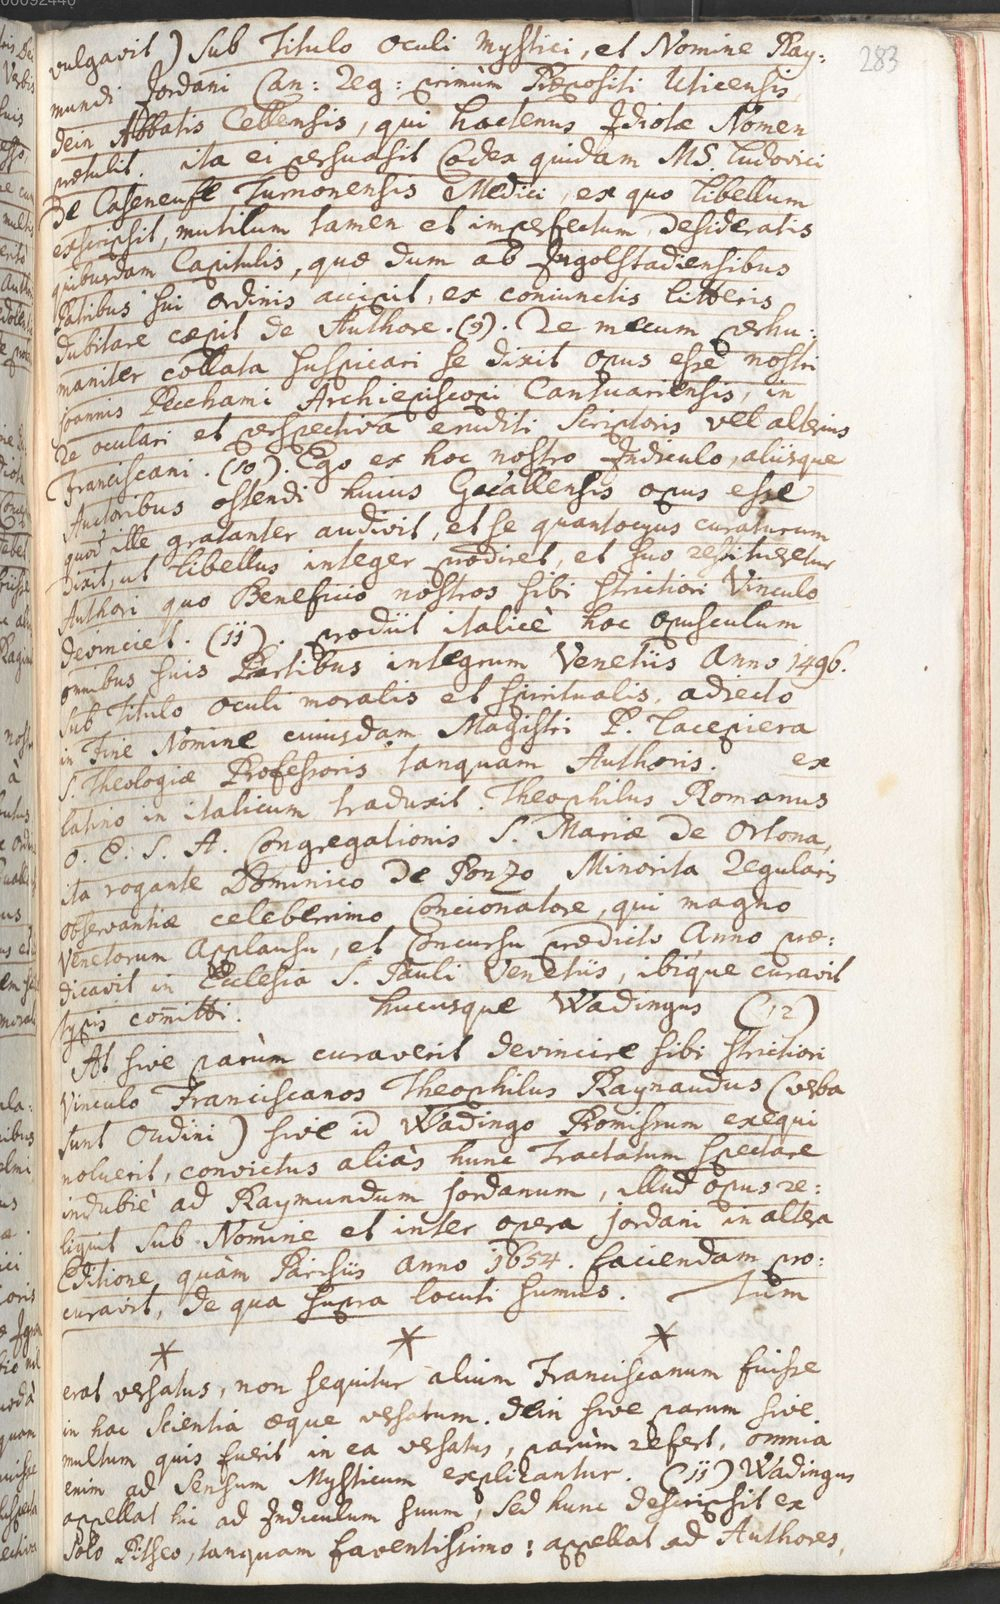 00092440
283
vulgavit) sub Titulo oculi Mystici, et Nomine Ray:
mundi Jordani Can: Reg: primùm Præpositi Uticensis,
dein Abbatis Cellensis, qui hactenus Idiotæ Nomen
prætulit. ita ei persuasit Codex quidam MS. Ludovici
De Caseneuse Turnonensis Medici, ex quo libellum
exscripsit, mutilum tamen et imperfectum, desideratis
quibusdam Capitulis, quæ dum ab Ingolstadiensibus
Patribus sui ordinis accipit, ex coniunctis litteris
dubitare cœpit de Authore. (9). Re mecum perhu:
maniter collata suspicari se dixit opus esse nostri
joannis Pecchami Archiepiscopi Cantuariensis, in
Re oculari et perspectiva eruditi Scriptoris vel alterius
Franciscani. (10). Ego ex hoc nostro Indiculo, aliisque
Auctoribus ostendi huius Gacallensis opus esse
quod ille gratanter audivit, et se quantocyus curaturum
dixit, ut libellus integer prodiret, et suo restitueretur
Authori quo Beneficio nostros sibi strictiori Vinculo
devinciet. (11). prodiit italicè hoc opusculum
omnibus suis Partibus integrum Venetiis Anno 1496.
sub Titulo oculi moralis et spiritualis, adiecto
in Fine Nomine cuiusdam Magistri P. Lacepiera
S. Theologiæ Professoris tanquam Authoris. ex
latino in italicum traduxit. Theophilus Romanus
O. E. S. A. Congregationis S. Mariæ de Ortona,
ita rogante Dominico de Ponzo Minorita Regularis
observantiæ celeberrimo Concionatore, qui magno
Venetorum Applausu, et Concursu prædicto Anno præ:
dicavit in Ecclesia S. Pauli Venetiis, ibique curavit
typis com̄itti. hucusque Wadingus (12)
At sive parùm curaverit devincire sibi strictiori
Vinculo Franciscanos Theophilus Raynaudus (verba
sunt Oudini) sive id Wadingo Promissum exequi
noluerit, convictus aliàs hunc Tractatum spectare
indubiè ad Raymundum Jordanum, illud opus re:
liquit sub Nomine et inter opera Jordani in altera
Editione, quàm Parisiis Anno 1654. faciendam pro:
curavit, de qua supra locuti sumus. — Tum
* * *
erat versatus, non sequitur alium Franciscanum fuisse
in hac Scientia æque versatum. dein sive parum sive
multum quis fuerit in ea versatus, parùm refert, omnia
enim ad sensum Mysticum explicantur. (11) Wadingus
appellat hic ad Indiculum suum, sed hunc descripsit ex
solo Pitseo, tanquam faventissimo: appellat ad Authores,